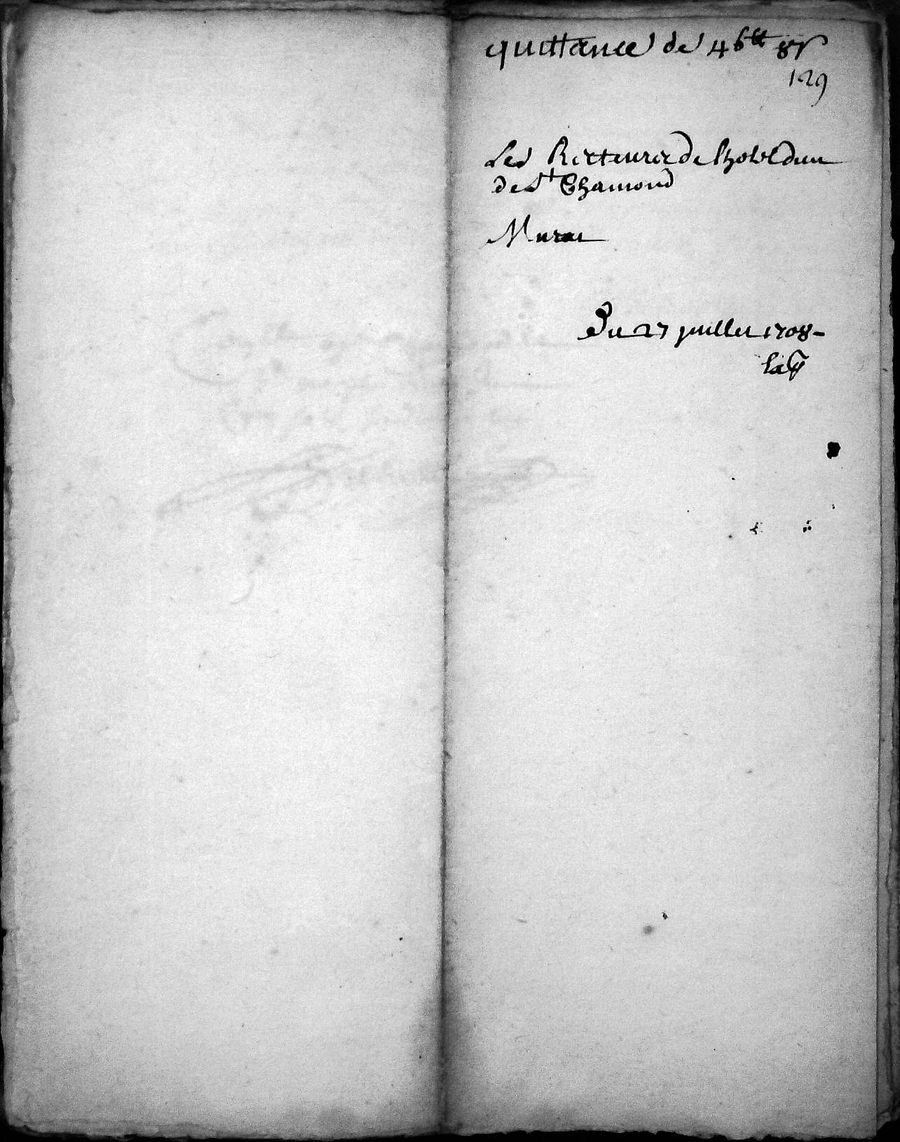 quittance de 46ᵗᵗ 8s
129
Les Recteurs de lhotel dieu
de Sᵗ Chamond
Murat
Du 27 juillet 1708